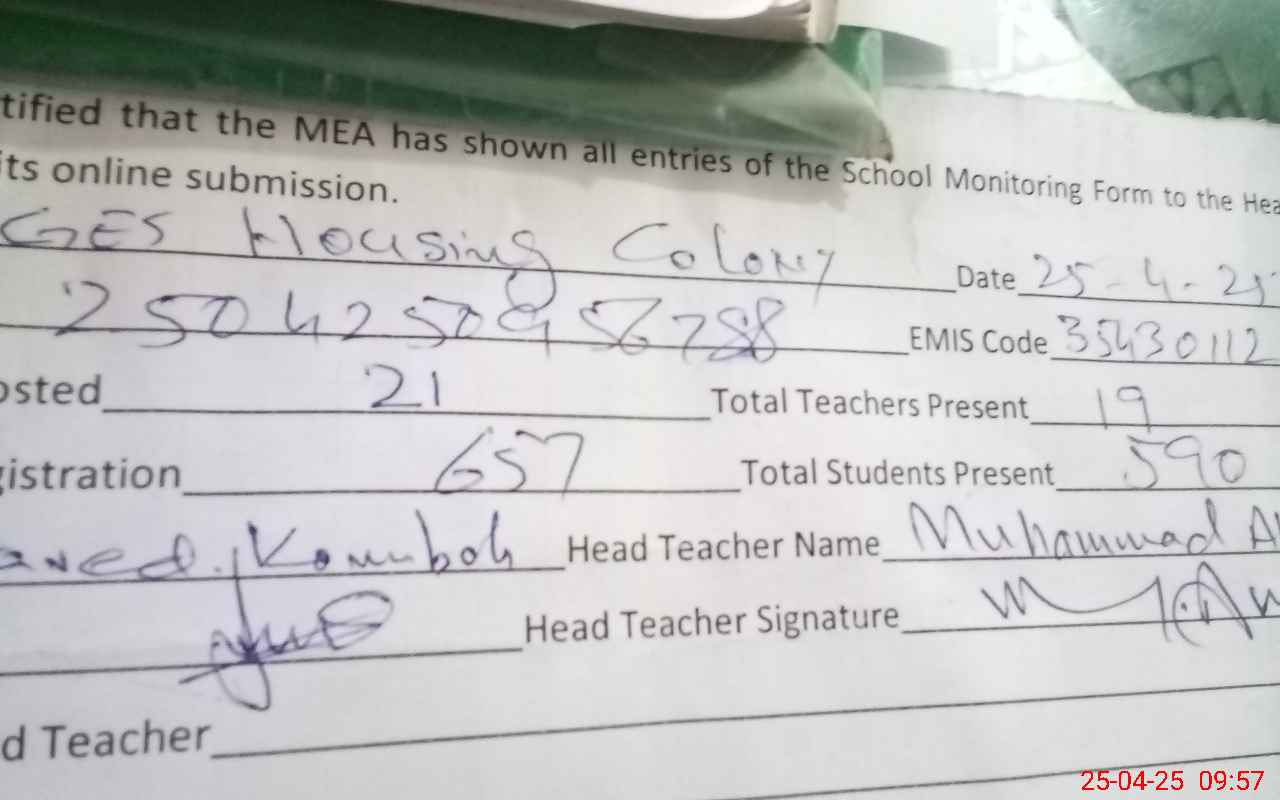 tified that the MEA has shown all entries of the School Monitoring Form to the Hea
its online submission.
GES Housing Colony Date 25-4-25
EMIS Code 35430112
osted 21 Total Teachers Present 19
gistration 657 Total Students Present 590
aved Kamboh Head Teacher Name Muhammad A
Head Teacher Signature
d Teacher
25-04-25 09:57